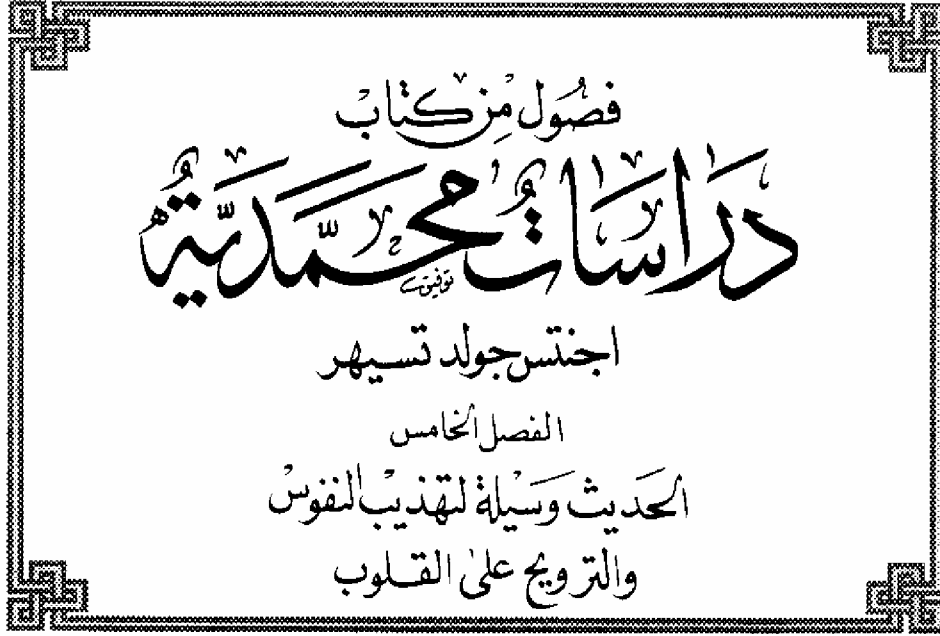 فصُول مِن كتابْ
دَرَاسَاتٌ محَمَّدَيَّةٌ
توفيق
اجنتس جولد تسيهر
الفصل الخامس
الحَديث وَسيْلة لتهْذيب النفوسْ
والترويح على القلوب